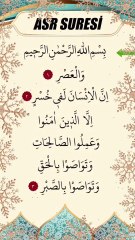 ASR SURESİ
بِسْمِ اللّٰهِ الرَّحْمٰنِ الرَّحِيمِ
وَالْعَصْرِ ۝١
اِنَّ الْاِنْسَانَ لَفٖي خُسْرٍ ۝٢
اِلَّا الَّذٖينَ اٰمَنُوا
وَعَمِلُوا الصَّالِحَاتِ
وَتَوَاصَوْا بِالْحَقِّ
وَتَوَاصَوْا بِالصَّبْرِ ۝٣